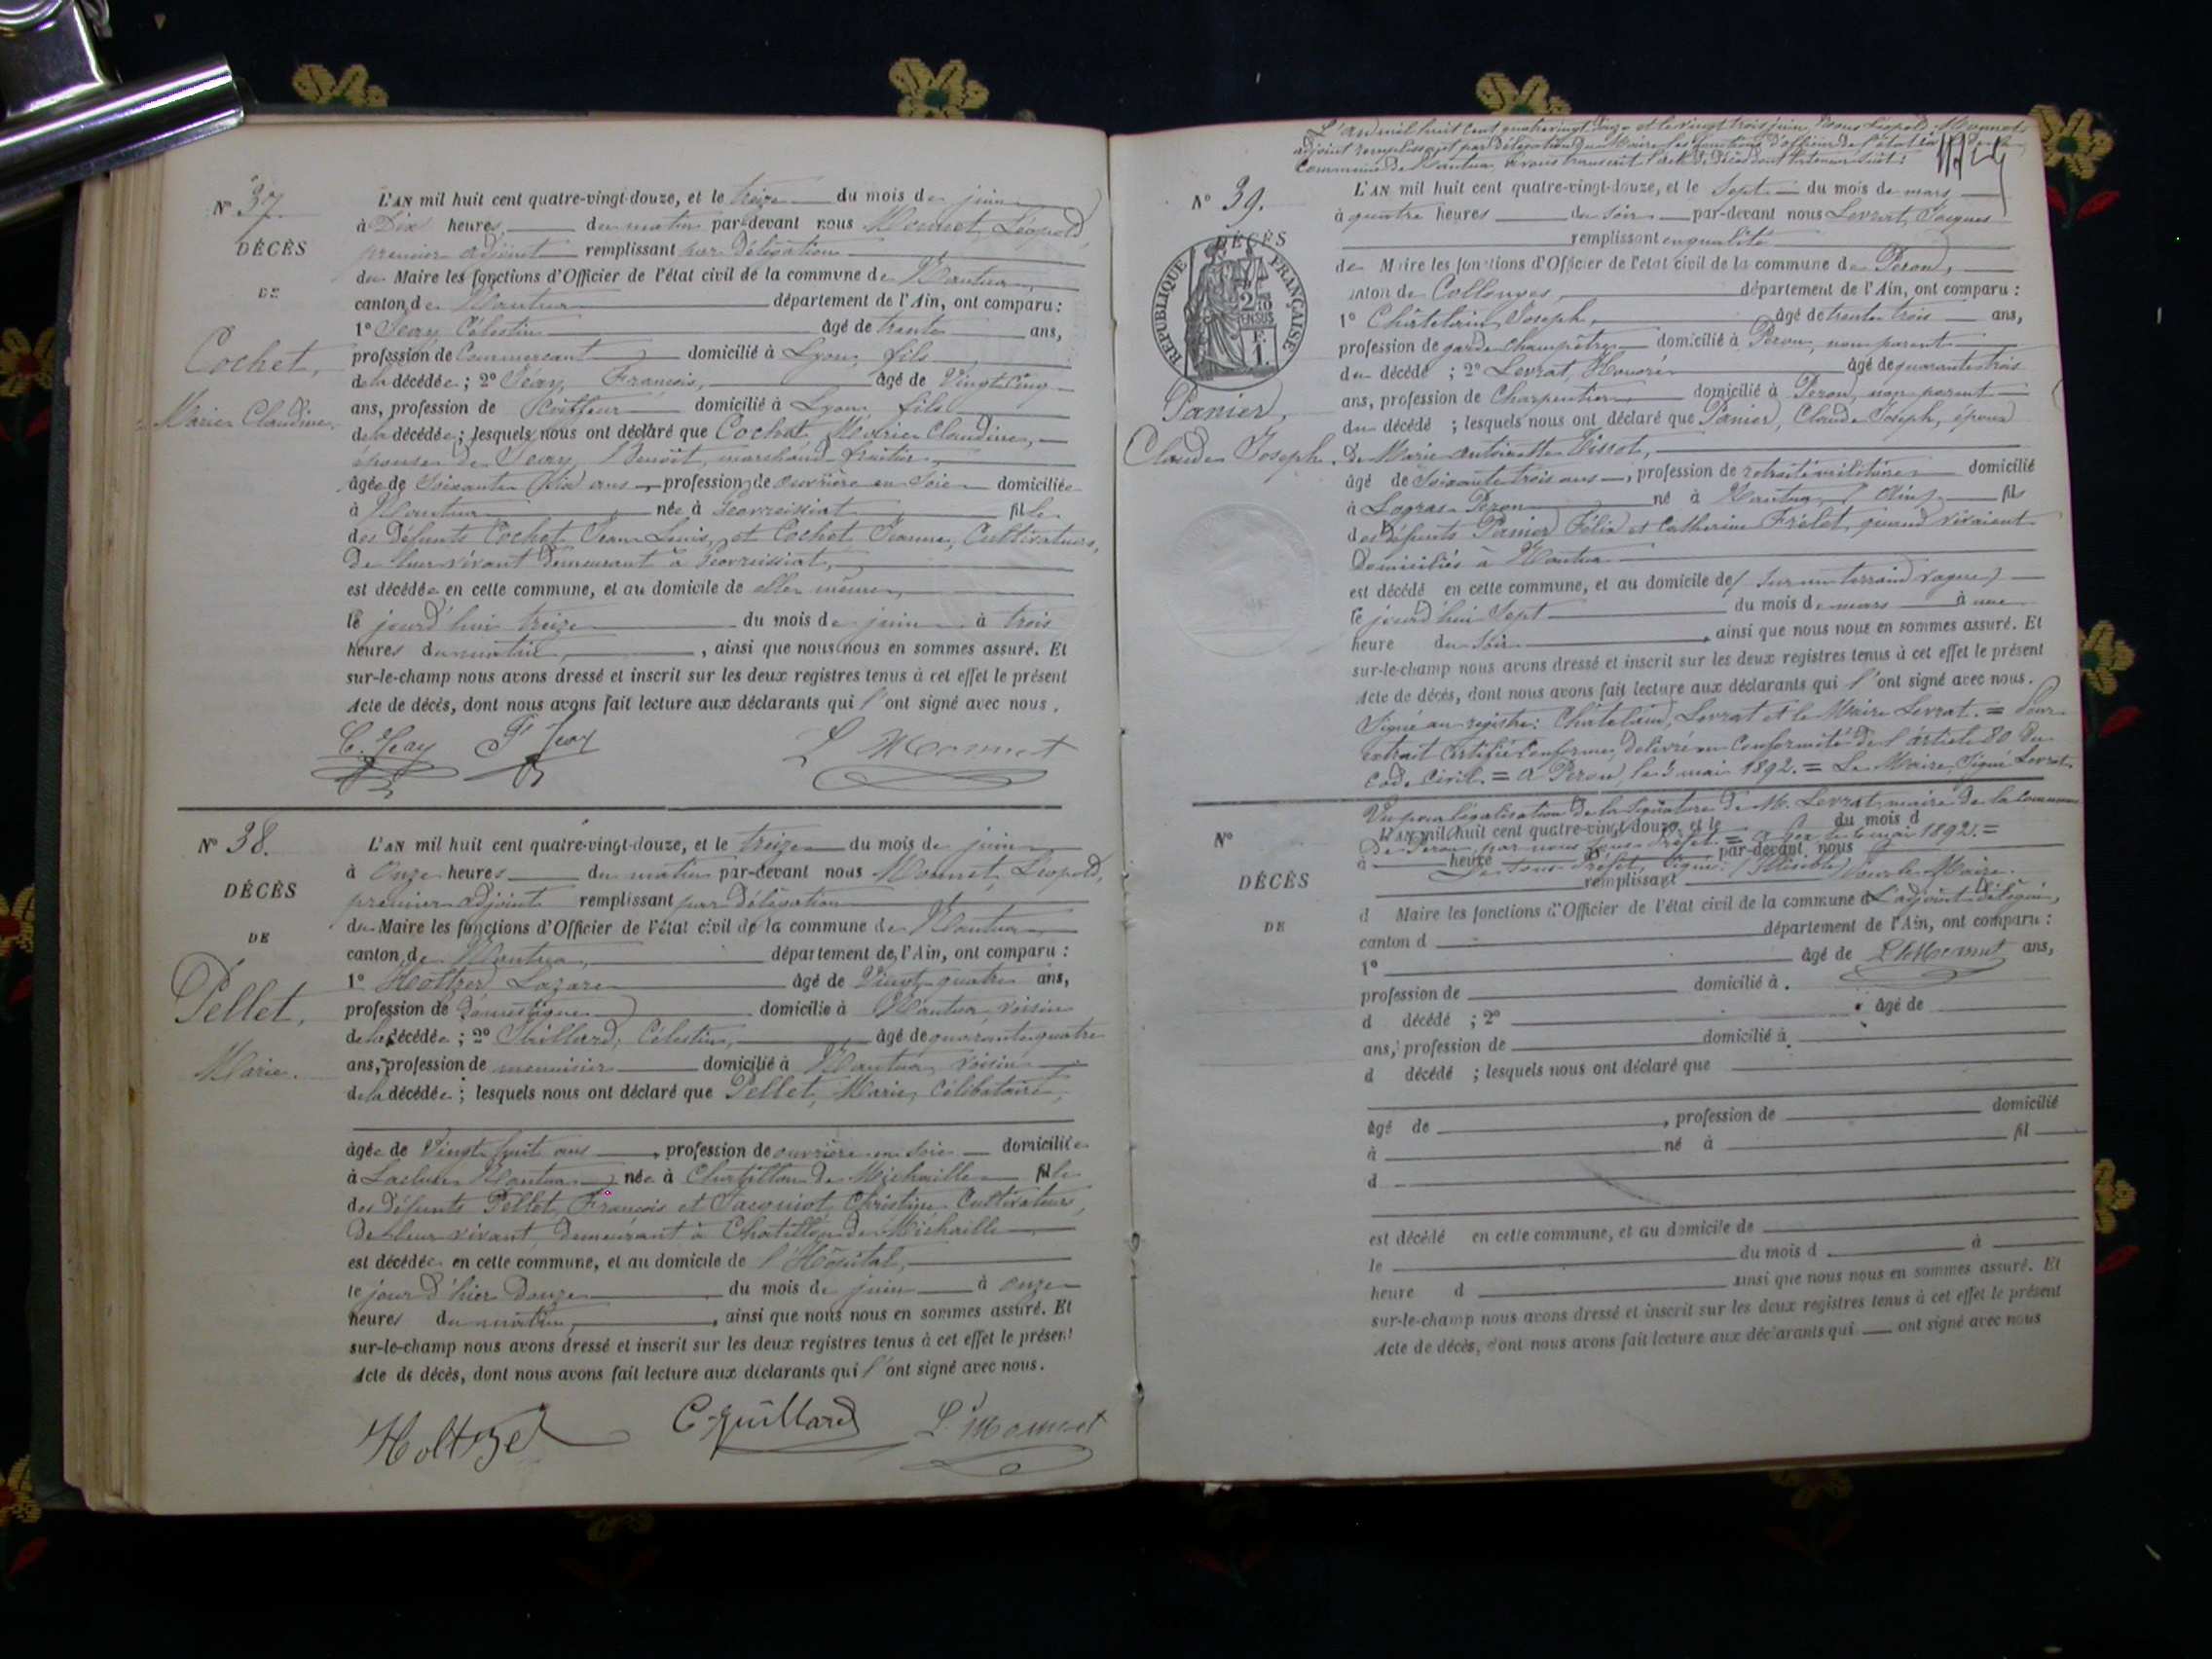 N° 37.
DÉCÈS
DE
Cochet,
Marie Claudine.
L'AN mil huit cent quatre-vingt-douze, et le treize du mois de juin
à Dix heures du matin par-devant nous Monnet, Léopold,
premier adjoint remplissant par délégation
du Maire les fonctions d'Officier de l'état civil de la commune de Nantua
canton de Nantua département de l'Ain, ont comparu :
1° Célestin âgé de trente ans,
profession de Commerçant domicilié à Lyon, fils
de la décédée ; 2° François, âgé de Vingt Cinq
ans, profession de domicilié à Lyon, fils
de la décédée ; lesquels nous ont déclaré que Cochet, Marie Claudine,
épouse de Benoît, marchand fruitier,
âgée de Soixante Dix ans, profession de ouvrière en Soie domiciliée
à Nantua née à Geovreissiat fille
des défunts Cochet Jean Louis, et Cochet Jeanne, Cultivateurs,
de leur vivant demeurant à Geovreissiat,
est décédée en cette commune, et au domicile de elle même,
le jourd'hui treize du mois de juin à trois
heures du matin, ainsi que nous nous en sommes assuré. Et
sur-le-champ nous avons dressé et inscrit sur les deux registres tenus à cet effet le présent
Acte de décès, dont nous avons fait lecture aux déclarants qui l'ont signé avec nous.
L Monnet
N° 38.
DÉCÈS
DE
Pellet,
Marie.
L'AN mil huit cent quatre-vingt-douze, et le treize du mois de juin
à Onze heures du matin par-devant nous Monnet, Léopold,
premier adjoint remplissant par délégation
du Maire les fonctions d'Officier de l'état civil de la commune de Nantua
canton de Nantua, département de l'Ain, ont comparu :
1° Lazare âgé de Vingt quatre ans,
profession de domestique domicilié à Nantua, voisin
de la décédée ; 2° Célestin, âgé de quarante quatre
ans, profession de menuisier domicilié à Nantua, voisin
de la décédée ; lesquels nous ont déclaré que Pellet, Marie, célibataire,
âgée de Vingt huit ans, profession de ouvrière en Soie domiciliée
à Lacluse Nantua, née à Chatillon de Michaille fille
des défunts Pellet, François et Jacquiot, Christine Cultivateurs,
de leur vivant, demeurant à Chatillon de Michaille
est décédée en cette commune, et au domicile de l'Hôpital,
le jour d'hier Douze du mois de juin à onze
heures du matin, ainsi que nous nous en sommes assuré. Et
sur-le-champ nous avons dressé et inscrit sur les deux registres tenus à cet effet le présent
Acte de décès, dont nous avons fait lecture aux déclarants qui l'ont signé avec nous.
Holtzer C. Guillard L. Monnet
L'an mil huit cent quatre vingt douze et le vingt trois juin, Nous Léopold Monnet
adjoint remplissant par délégation du Maire les fonctions d'officier de l'état civil de la
Commune de Nantua, avons transcrit l'acte de décès dont la teneur suit :
N° 39.
DÉCÈS
RÉPUBLIQUE FRANÇAISE
Panier,
Claude Joseph.
L'AN mil huit cent quatre-vingt-douze, et le Sept du mois de mars
à quatre heures du soir par-devant nous Levrat, Jacques
remplissant en qualité
de Maire les fonctions d'Officier de l'état civil de la commune de Peron,
canton de Collonges, département de l'Ain, ont comparu :
1° Châtelain, Joseph, âgé de trente trois ans,
profession de garde champêtre domicilié à Peron, non parent
du décédé ; 2° Levrat, Honoré âgé de quarante trois
ans, profession de Charpentier domicilié à Peron, non parent
du décédé ; lesquels nous ont déclaré que Panier, Claude Joseph, époux
de Marie Antoinette Tissot,
âgé de Soixante trois ans, profession de retraité militaire domicilié
à Logras Peron né à Nantua, (Ain) fils
des défunts Panier Félix et Catherine Frelet, quand vivaient
domiciliés à Nantua
est décédé en cette commune, et au domicile de (sur un terrain vague)
le jourd'hui Sept du mois de mars à une
heure du Soir, ainsi que nous nous en sommes assuré. Et
sur-le-champ nous avons dressé et inscrit sur les deux registres tenus à cet effet le présent
Acte de décès, dont nous avons fait lecture aux déclarants qui l'ont signé avec nous.
Signé au registre : Châtelain, Levrat et le Maire Levrat. = Pour
extrait certifié conforme, délivré en conformité de l'article 80 du
Code Civil. = à Peron, le 3 mai 1892. = Le Maire, signé Levrat.
Vu pour légalisation de la signature de Mr. Levrat, maire de la Commune
de Peron, par nous Sous-Préfet = à Gex le 6 mai 1892. =
Le Sous-Préfet, Signé : (Illisible) Pour le Maire.
L'adjoint délégué,
L Monnet
N°
DÉCÈS
DE
L'AN mil huit cent quatre-vingt-douze, et le du mois d
à heure d par-devant nous
remplissant
d Maire les fonctions d'Officier de l'état civil de la commune d
canton d département de l'Ain, ont comparu :
1° âgé de ans,
profession de domicilié à
d décédé ; 2° âgé de
ans, profession de domicilié à
d décédé ; lesquels nous ont déclaré que
âgé de , profession de domicilié
à né à fil
d
est décédé en cette commune, et au domicile de
le du mois d à
heure d ainsi que nous nous en sommes assuré. Et
sur-le-champ nous avons dressé et inscrit sur les deux registres tenus à cet effet le présent
Acte de décès, dont nous avons fait lecture aux déclarants qui ont signé avec nous